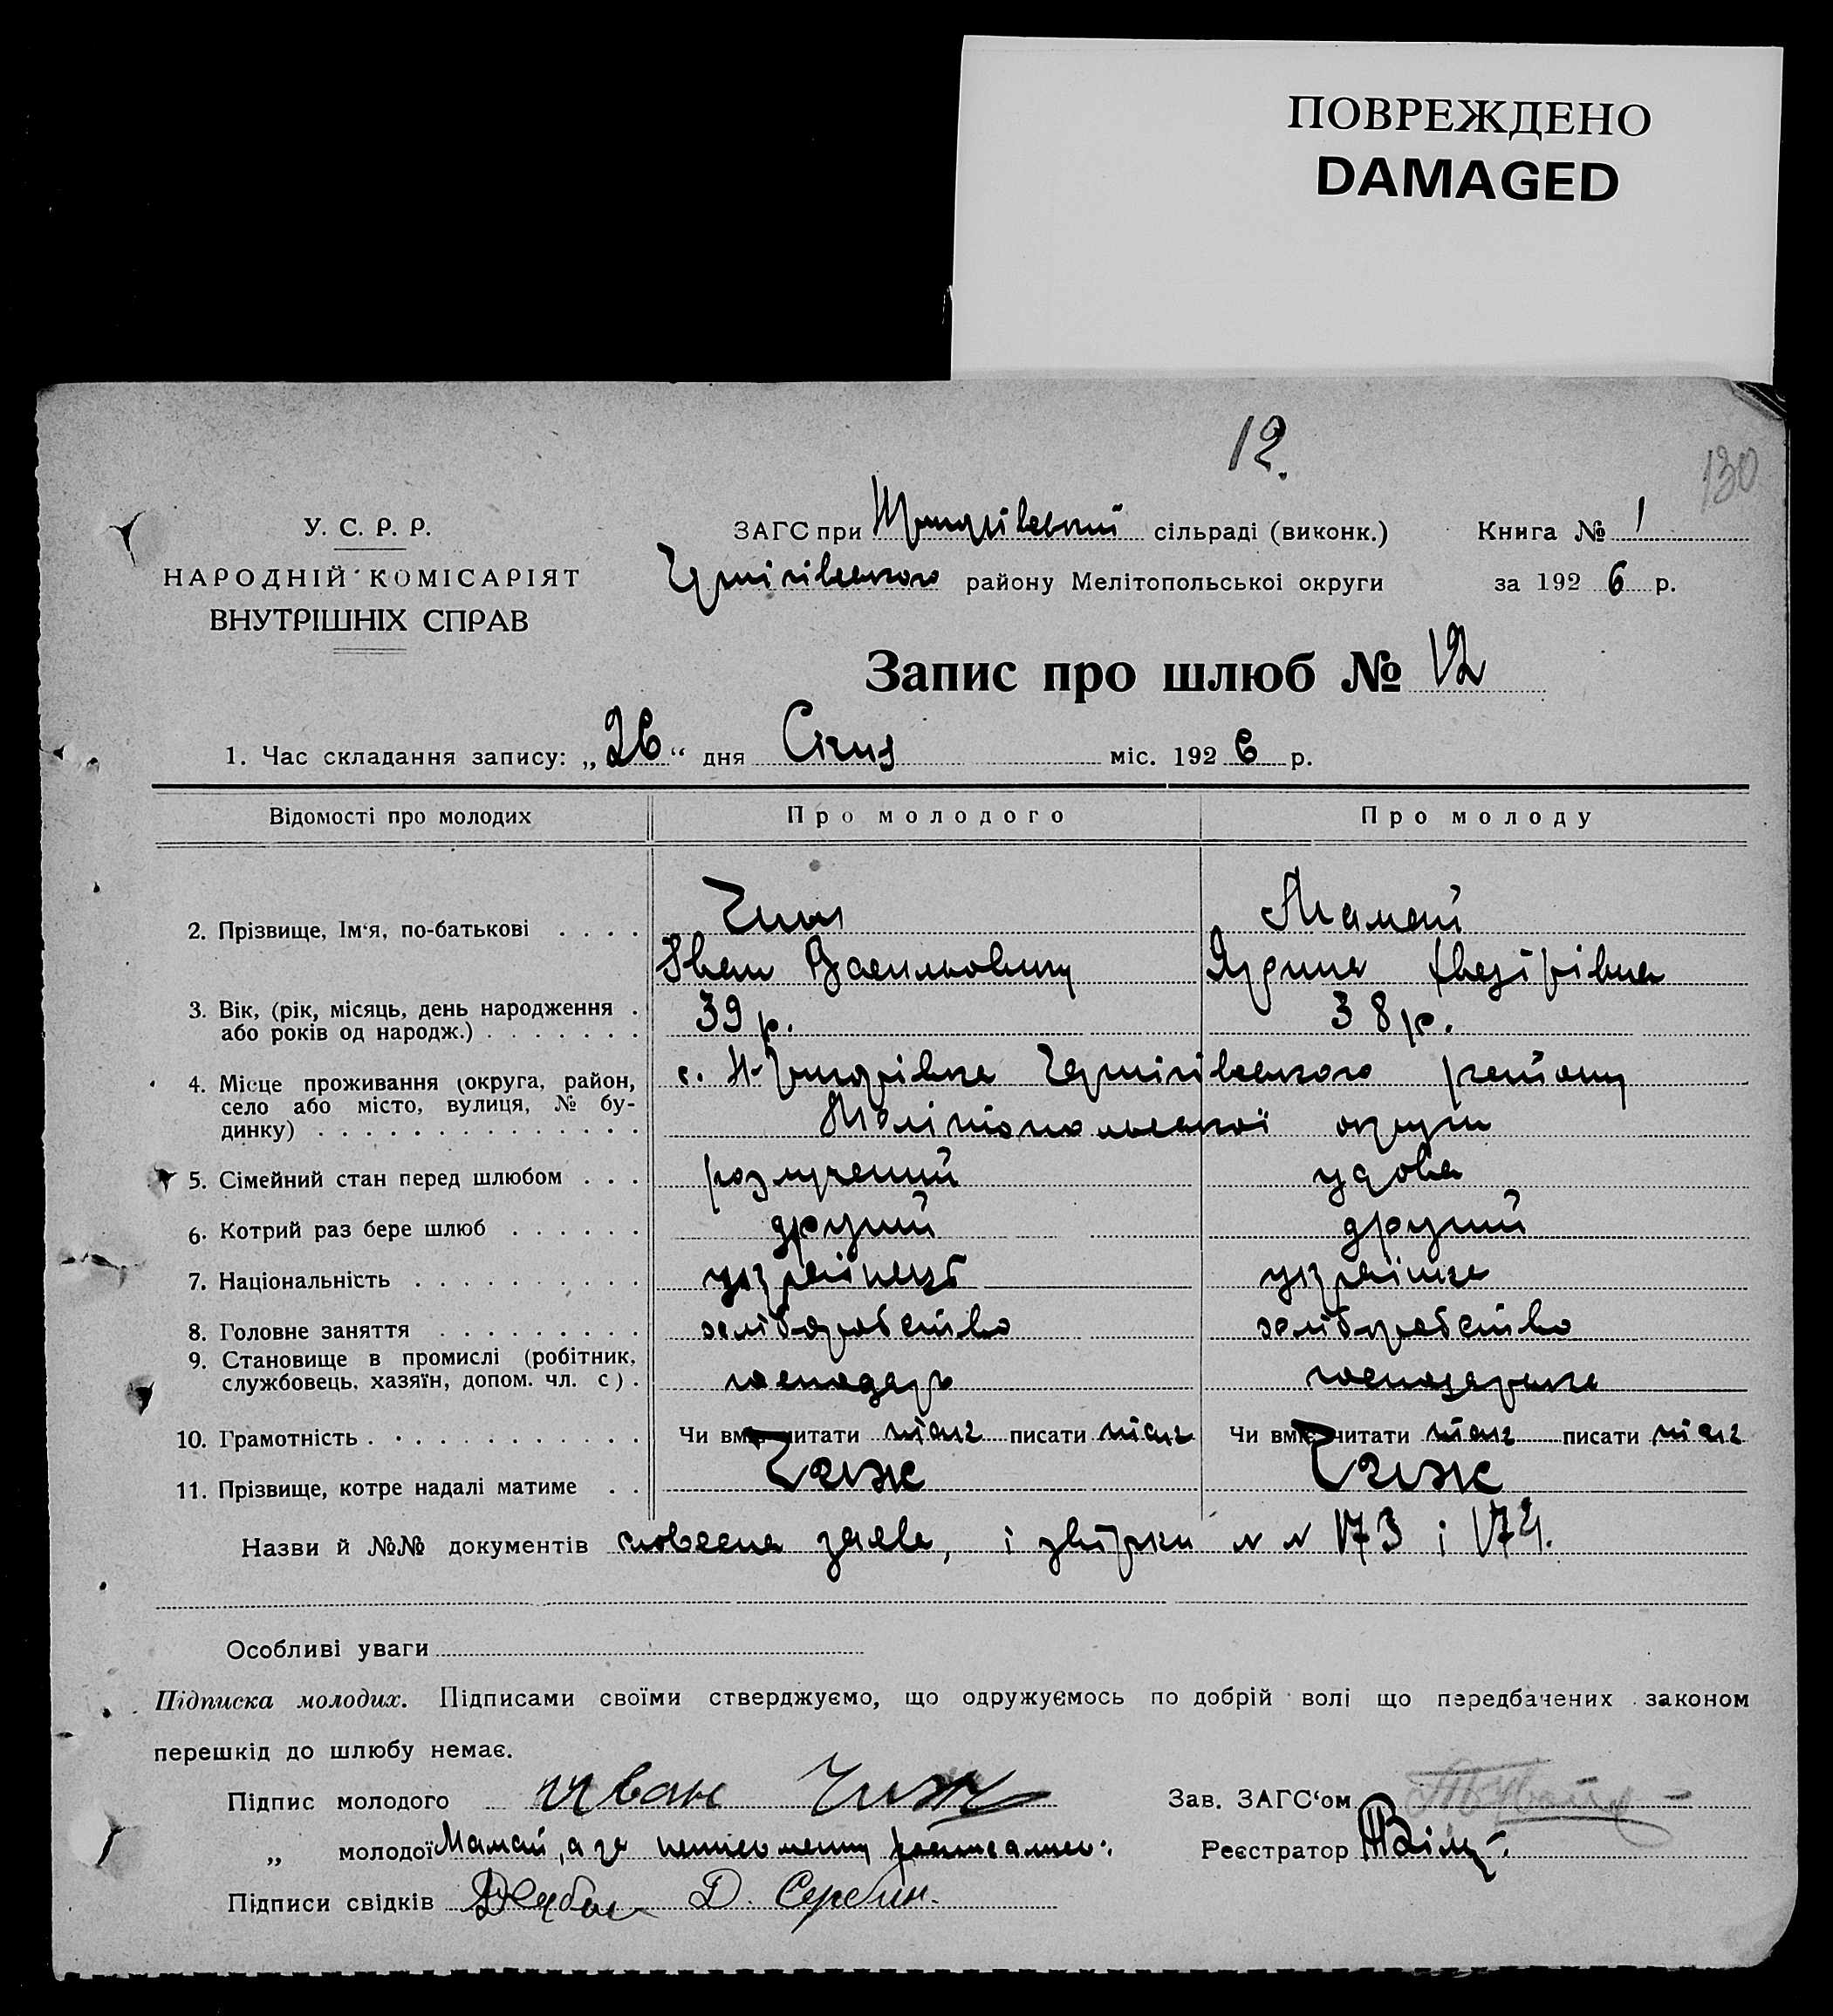 ПОВРЕЖДЕНО
DAMAGED
12.
130
У. С. Р. Р.
НАРОДНІЙ КОМІСАРІЯТ
ВНУТРІШНІХ СПРАВ
ЗАГС при сільраді (виконк.) Книга № 1
Чернігівського району Мелітопольської округи за 192 6 р.
Запис про шлюб № 12
1. Час складання запису: „ 26 “ дня Січня міс. 192 6 р.
Відомості про молодих Про молодого Про молоду
2. Прізвище, Ім'я, по-батькові . . . . Чиж Мамай
Іван Васильович
3. Вік, (рік, місяць, день народження .
або років од народж.) . . . . . . . 39 р. 38 р.
4. Місце проживання (округа, район,
село або місто, вулиця, № бу-
динку) . . . . . . . . . . . . . .
с. Чернігівського району
Мелітопольської округи
5. Сімейний стан перед шлюбом . . . розлучений удова
6. Котрий раз бере шлюб . . . . . . другий другий
7. Національність . . . . . . . . . . українець українка
8. Головне заняття . . . . . . . . . хліборобство хліборобство
9. Становище в промислі (робітник,
службовець, хазяїн, допом. чл. с) . господарь господарка
10. Грамотність . . . . . . . . . . . . Чи вміє читати писати Чи вміє читати писати
11. Прізвище, котре надалі матиме . . Чиж Чиж
Назви й №№ документів словесна заява, і 173 і 174.
Особливі уваги
Підписка молодих. Підписами своїми стверджуємо, що одружуємось по добрій волі що передбачених законом
перешкід до шлюбу немає.
Підпис молодого Иван Чиж Зав. ЗАГС'ом
„ молодої Мамай, а за Реєстратор
Підписи свідків Д. Сербин.